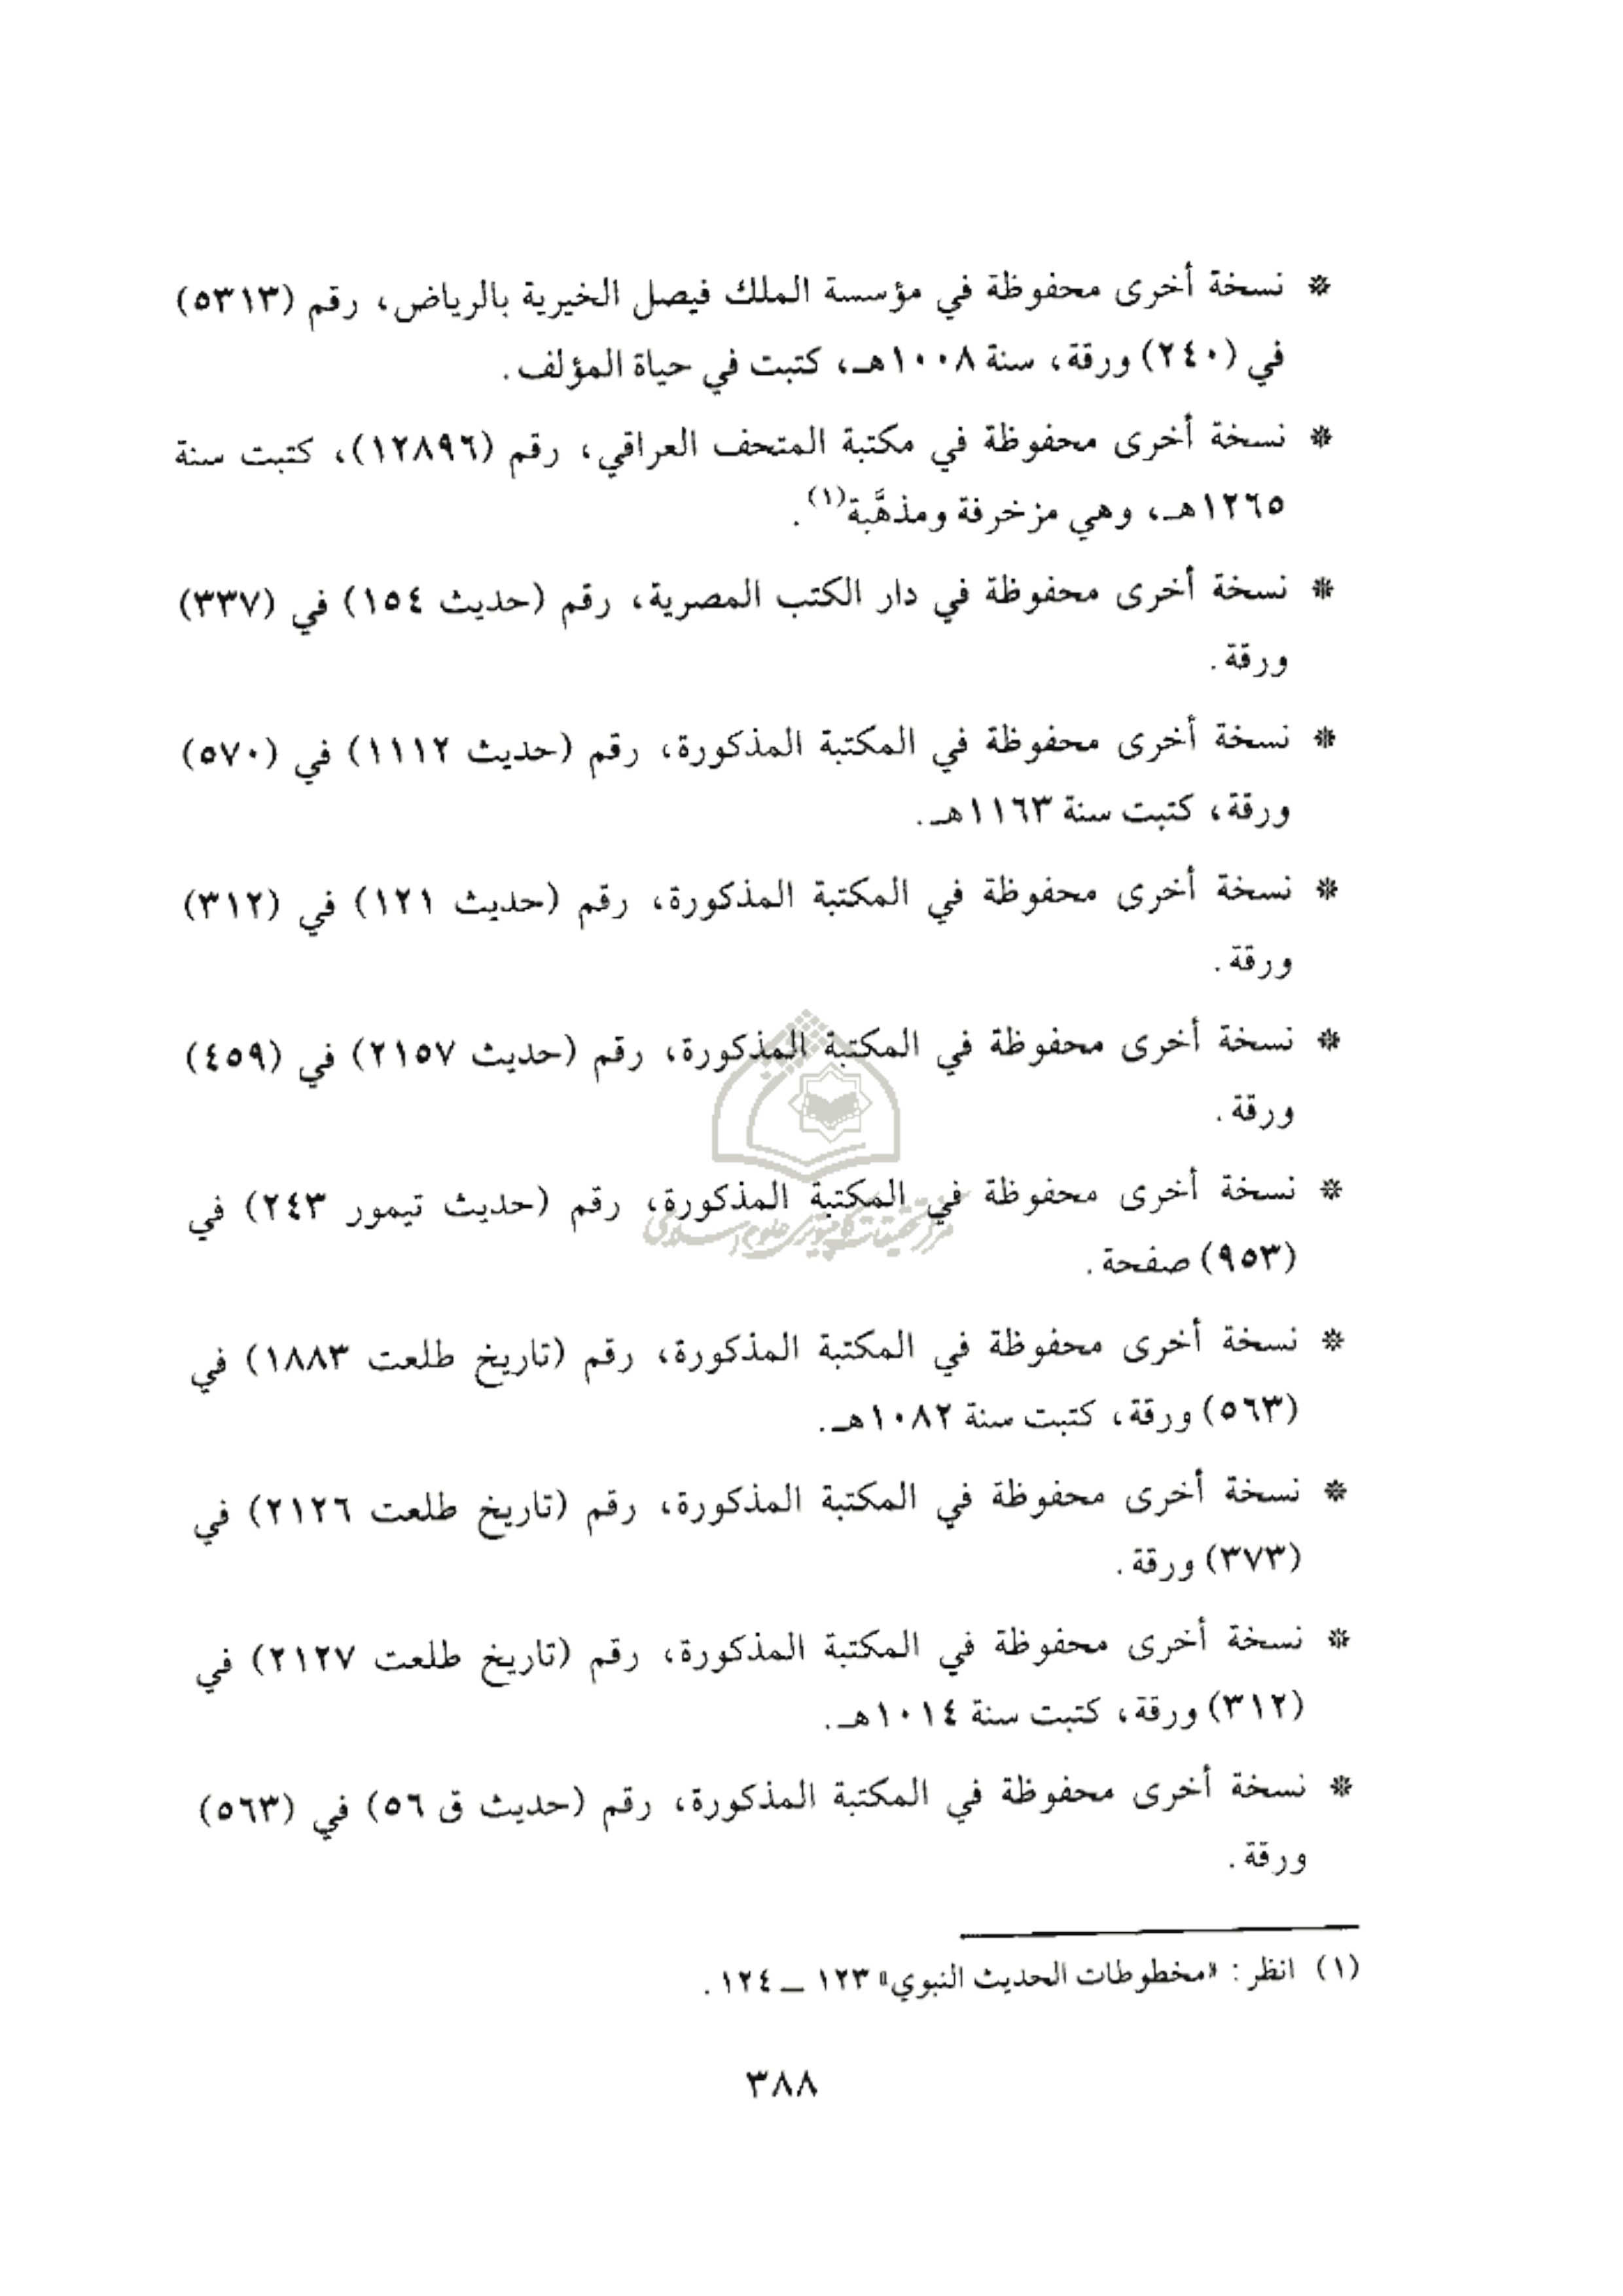 * نسخة أخرى محفوظة في مؤسسة الملك فيصل الخيرية بالرياض، رقم (٥٣١٣)
في (٢٤٠) ورقة، سنة ١٠٠٨هـ، كتبت في حياة المؤلف.
* نسخة أخرى محفوظة في مكتبة المتحف العراقي، رقم (١٢٨٩٦)، كتبت سنة
١٢٦٥هـ، وهي مزخرفة ومذهَّبة(١).
* نسخة أخرى محفوظة في دار الكتب المصرية، رقم (حديث ١٥٤) في (٣٣٧)
ورقة.
* نسخة أخرى محفوظة في المكتبة المذكورة، رقم (حديث ١١١٢) في (٥٧٠)
ورقة، كتبت سنة ١١٦٣هـ.
* نسخة أخرى محفوظة في المكتبة المذكورة، رقم (حديث ١٢١) في (٣١٢)
ورقة.
* نسخة أخرى محفوظة في المكتبة المذكورة، رقم (حديث ٢١٥٧) في (٤٥٩)
ورقة.
* نسخة أخرى محفوظة في المكتبة المذكورة، رقم (حديث تيمور ٢٤٣) في
مرکز تحقیقات کامپیوتری علوم اسلامی
(٩٥٣) صفحة.
* نسخة أخرى محفوظة في المكتبة المذكورة، رقم (تاريخ طلعت ١٨٨٣) في
(٥٦٣) ورقة، كتبت سنة ١٠٨٢هـ.
* نسخة أخرى محفوظة في المكتبة المذكورة، رقم (تاريخ طلعت ٢١٢٦) في
(٣٧٣) ورقة.
* نسخة أخرى محفوظة في المكتبة المذكورة، رقم (تاريخ طلعت ٢١٢٧) في
(٣١٢) ورقة، كتبت سنة ١٠١٤هـ.
* نسخة أخرى محفوظة في المكتبة المذكورة، رقم (حديث ق ٥٦) في (٥٦٣)
ورقة.
(١) انظر: «مخطوطات الحديث النبوي» ١٢٣ ــ ١٢٤.
٣٨٨